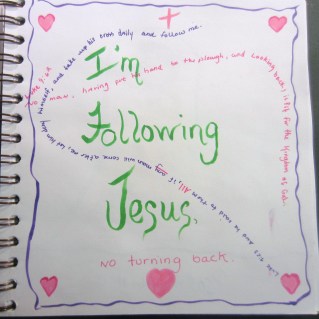 I'm
Following
Jesus,
No turning back.
to them All, if any man will come after me, let him deny himself, and take up his cross daily and follow me.
man, having put his hand to the plough, and looking back, is fit for the Kingdom of God.